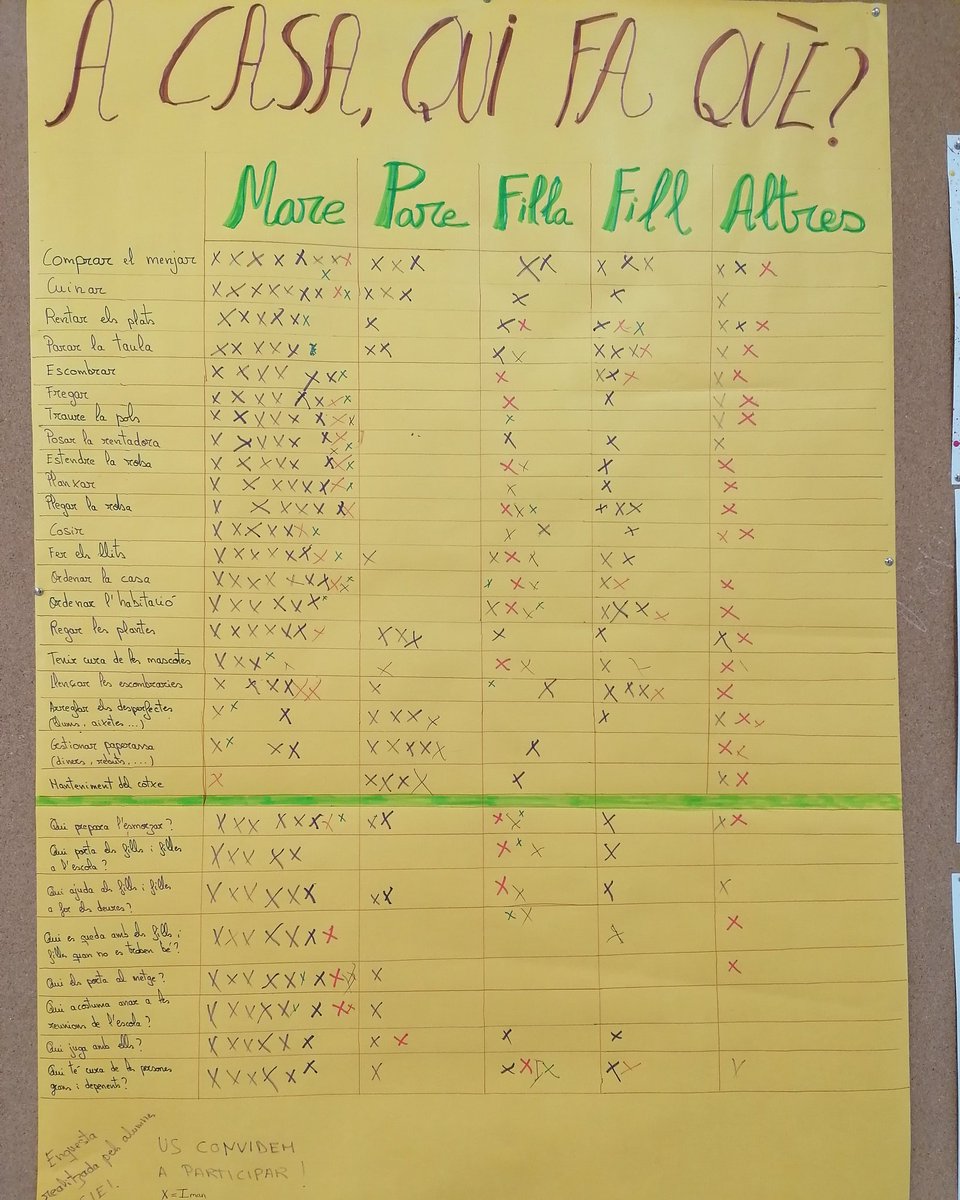 A CASA, QUI FA QUÈ?
Mare Pare Filla Fill Altres
Comprar el menjar X X X X X X X X X X X X X X X X X X X
Cuinar X X X X X X X X X X X X X X X
Rentar els plats X X X X X X X X X X X X X X X
Parar la taula X X X X X X X X X X X X X X X X
Escombrar
Fregar
Traure la pols
Posar la rentadora
Estendre la roba
Planxar
Plegar la roba
Cosir
Fer els llits
Ordenar la casa
Ordenar l'habitació
Regar les plantes
Tenir cura de les mascotes
Llençar les escombraries
Arreglar els desperfectes
(llums, aixetes...)
Gestionar paperassa
(diners, rebuts,....)
Manteniment del cotxe
Qui prepara l'esmorzar?
Qui porta els fills i filles
a l'escola?
Qui ajuda als fills i filles
a fer els deures?
Qui es queda amb els fills i
filles quan no es troben bé?
Qui els porta al metge?
Qui acostuma anar a les
reunions de l'escola?
Qui juga amb ells?
Qui té cura de les persones
grans i depenents?
Enquesta
realitzada pels alumnes
US CONVIDEM
A PARTICIPAR!
X = Iman